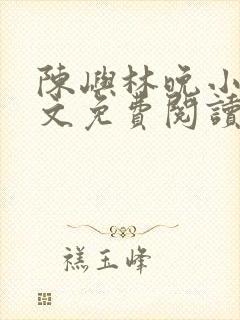 陳嶼林晚小
文免費閱讀
禚玉峰